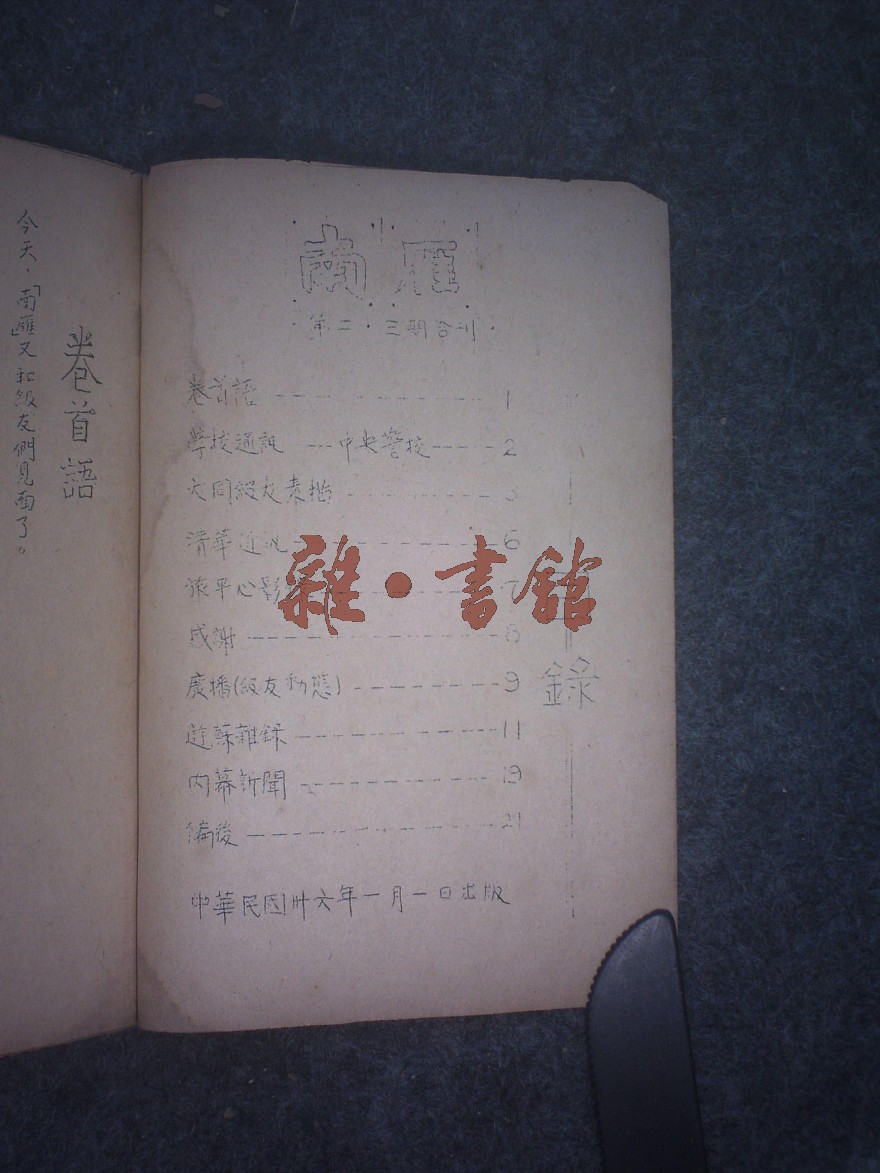 南雁
第二·三期合刊
卷首語 1
學校通訊 中央警校 2
大同級友素描
清華近況 6
平心影 7
感謝 8
廣播(級友動態) 9
遊蘇雜錄 11
內幕新聞 19
編後 21
中華民國卅六年一月一日出版
錄
雜·書館
卷首語
今天,「南雁」又和級友們見面了。